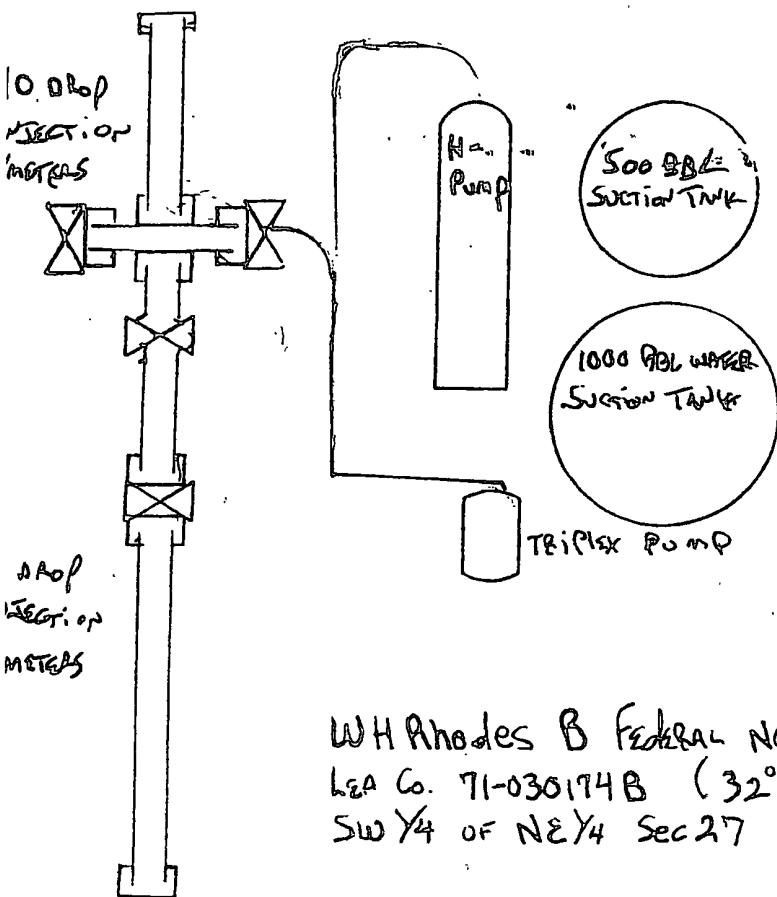 10 DROP
NJECTION
METERS
H-
PUMP
500 BBL
SUCTION TANK
1000 BBL WATER
SUCTION TANK
TRiPLEX PUMP
DROP
JECTION
METERS
WH Rhodes B FEDERAL NO
LEA Co. 71-030174B (32°
SW 1/4 OF NE 1/4 Sec 27